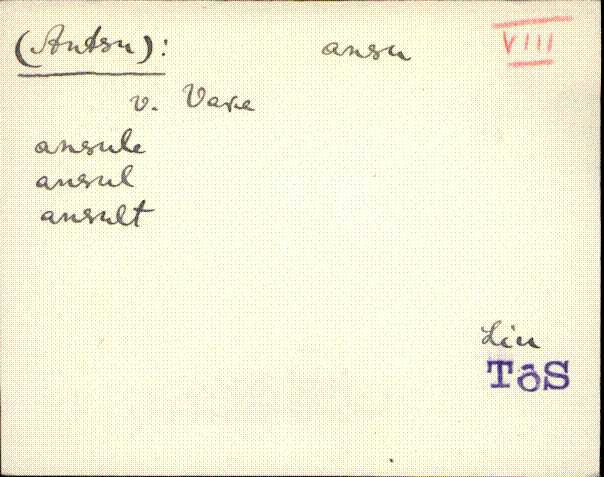 (Antsu): ansu VIII
v. Vare
ansule
ansul
ansult
Lin
TÕS